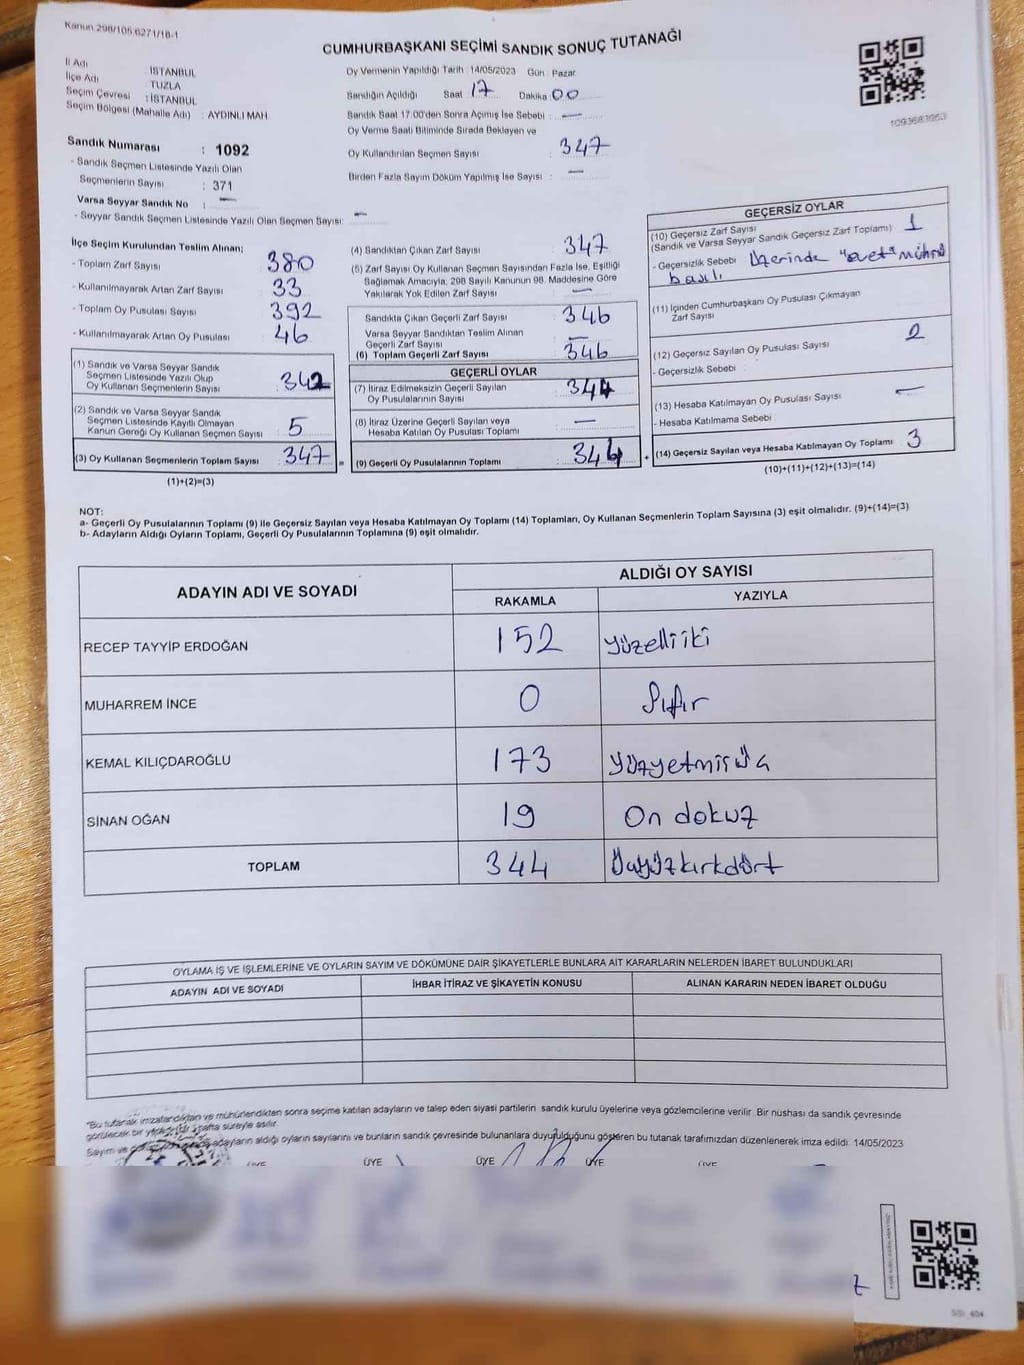 Kanun 298/105.6271/18-1
CUMHURBAŞKANI SEÇİMİ SANDIK SONUÇ TUTANAĞI
İl Adı İSTANBUL
İlçe Adı TUZLA
Seçim Çevresi : İSTANBUL
Seçim Bölgesi (Mahalle Adı) : AYDINLI MAH.
Sandık Numarası : 1092
- Sandık Seçmen Listesinde Yazılı Olan
Seçmenlerin Sayısı : 371
Varsa Seyyar Sandık No : —
- Seyyar Sandık Seçmen Listesinde Yazılı Olan Seçmen Sayısı: —
Oy Vermenin Yapıldığı Tarih 14/05/2023 Gün : Pazar
Sandığın Açıldığı Saat 17 Dakika 00
Sandık Saat 17.00'den Sonra Açımış İse Sebebi : —
Oy Verme Saati Bitiminde Sırada Bekleyen ve
Oy Kullandırılan Seçmen Sayısı : 347
Birden Fazla Sayım Döküm Yapılmış İse Sayısı : —
1093683953
İlçe Seçim Kurulundan Teslim Alınan;
- Toplam Zarf Sayısı : 380
- Kullanılmayarak Artan Zarf Sayısı : 33
- Toplam Oy Pusulası Sayısı : 392
- Kullanılmayarak Artan Oy Pusulası : 46
(1) Sandık ve Varsa Seyyar Sandık
Seçmen Listesinde Yazılı Olup
Oy Kullanan Seçmenlerin Sayısı : 342
(2) Sandık ve Varsa Seyyar Sandık
Seçmen Listesinde Kayıtlı Olmayan
Kanun Gereği Oy Kullanan Seçmen Sayısı : 5
(3) Oy Kullanan Seçmenlerin Toplam Sayısı : 347
(1)+(2)=(3)
(4) Sandıktan Çıkan Zarf Sayısı : 347
(5) Zarf Sayısı Oy Kullanan Seçmen Sayısından Fazla İse, Eşitliği
Sağlamak Amacıyla; 298 Sayılı Kanunun 98. Maddesine Göre
Yakılarak Yok Edilen Zarf Sayısı : —
Sandıkta Çıkan Geçerli Zarf Sayısı : 346
Varsa Seyyar Sandıktan Teslim Alınan
Geçerli Zarf Sayısı : —
(6) Toplam Geçerli Zarf Sayısı : 346
GEÇERLİ OYLAR
(7) İtiraz Edilmeksizin Geçerli Sayılan
Oy Pusulalarının Sayısı : 344
(8) İtiraz Üzerine Geçerli Sayılan veya
Hesaba Katılan Oy Pusulası Toplamı : —
= (9) Geçerli Oy Pusulalarının Toplamı : 344 +
GEÇERSİZ OYLAR
(10) Geçersiz Zarf Sayısı
(Sandık ve Varsa Seyyar Sandık Geçersiz Zarf Toplamı) : 1
- Geçersizlik Sebebi : Üzerinde "evet" mührü
basılı
(11) İçinden Cumhurbaşkanı Oy Pusulası Çıkmayan
Zarf Sayısı
(12) Geçersiz Sayılan Oy Pusulası Sayısı : 2
- Geçersizlik Sebebi :
(13) Hesaba Katılmayan Oy Pusulası Sayısı : —
- Hesaba Katılmama Sebebi :
(14) Geçersiz Sayılan veya Hesaba Katılmayan Oy Toplamı : 3
(10)+(11)+(12)+(13)=(14)
NOT:
a- Geçerli Oy Pusulalarının Toplamı (9) ile Geçersiz Sayılan veya Hesaba Katılmayan Oy Toplamı (14) Toplamları, Oy Kullanan Seçmenlerin Toplam Sayısına (3) eşit olmalıdır. (9)+(14)=(3)
b- Adayların Aldığı Oyların Toplamı, Geçerli Oy Pusulalarının Toplamına (9) eşit olmalıdır.
ADAYIN ADI VE SOYADI ALDIĞI OY SAYISI
RAKAMLA YAZIYLA
RECEP TAYYİP ERDOĞAN 152 yüzelliiki
MUHARREM İNCE 0 Sıfır
KEMAL KILIÇDAROĞLU 173 yüzyetmişüç
SİNAN OĞAN 19 On dokuz
TOPLAM 344 Üçyüzkırkdört
OYLAMA İŞ VE İŞLEMLERİNE VE OYLARIN SAYIM VE DÖKÜMÜNE DAİR ŞİKAYETLERLE BUNLARA AİT KARARLARIN NELERDEN İBARET BULUNDUKLARI
ADAYIN ADI VE SOYADI İHBAR İTİRAZ VE ŞİKAYETİN KONUSU ALINAN KARARIN NEDEN İBARET OLDUĞU
"Bu tutanak imzalandıktan ve mühürlendikten sonra seçime katılan adayların ve talep eden siyasi partilerin sandık kurulu üyelerine veya gözlemcilerine verilir. Bir nüshası da sandık çevresinde
görülecek bir yere bir hafta süreyle asılır.
Sayım ve adayların aldığı oyların sayılarını ve bunların sandık çevresinde bulunanlara duyurulduğunu gösteren bu tutanak tarafımızdan düzenlenerek imza edildi. 14/05/2023
ÜYE ÜYE ÜYE ÜYE ÜYE